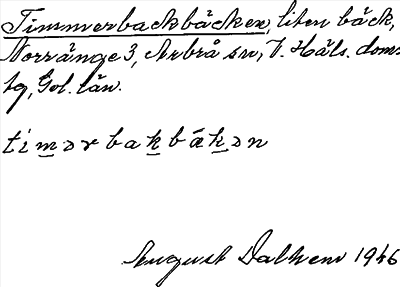 Timmerbackbäcken, liten bäck,
Norränge 3, Arbrå sn, V. Häls. doms-
tg, Gol. län.
timərbakbäkən
August Dalhem 1946